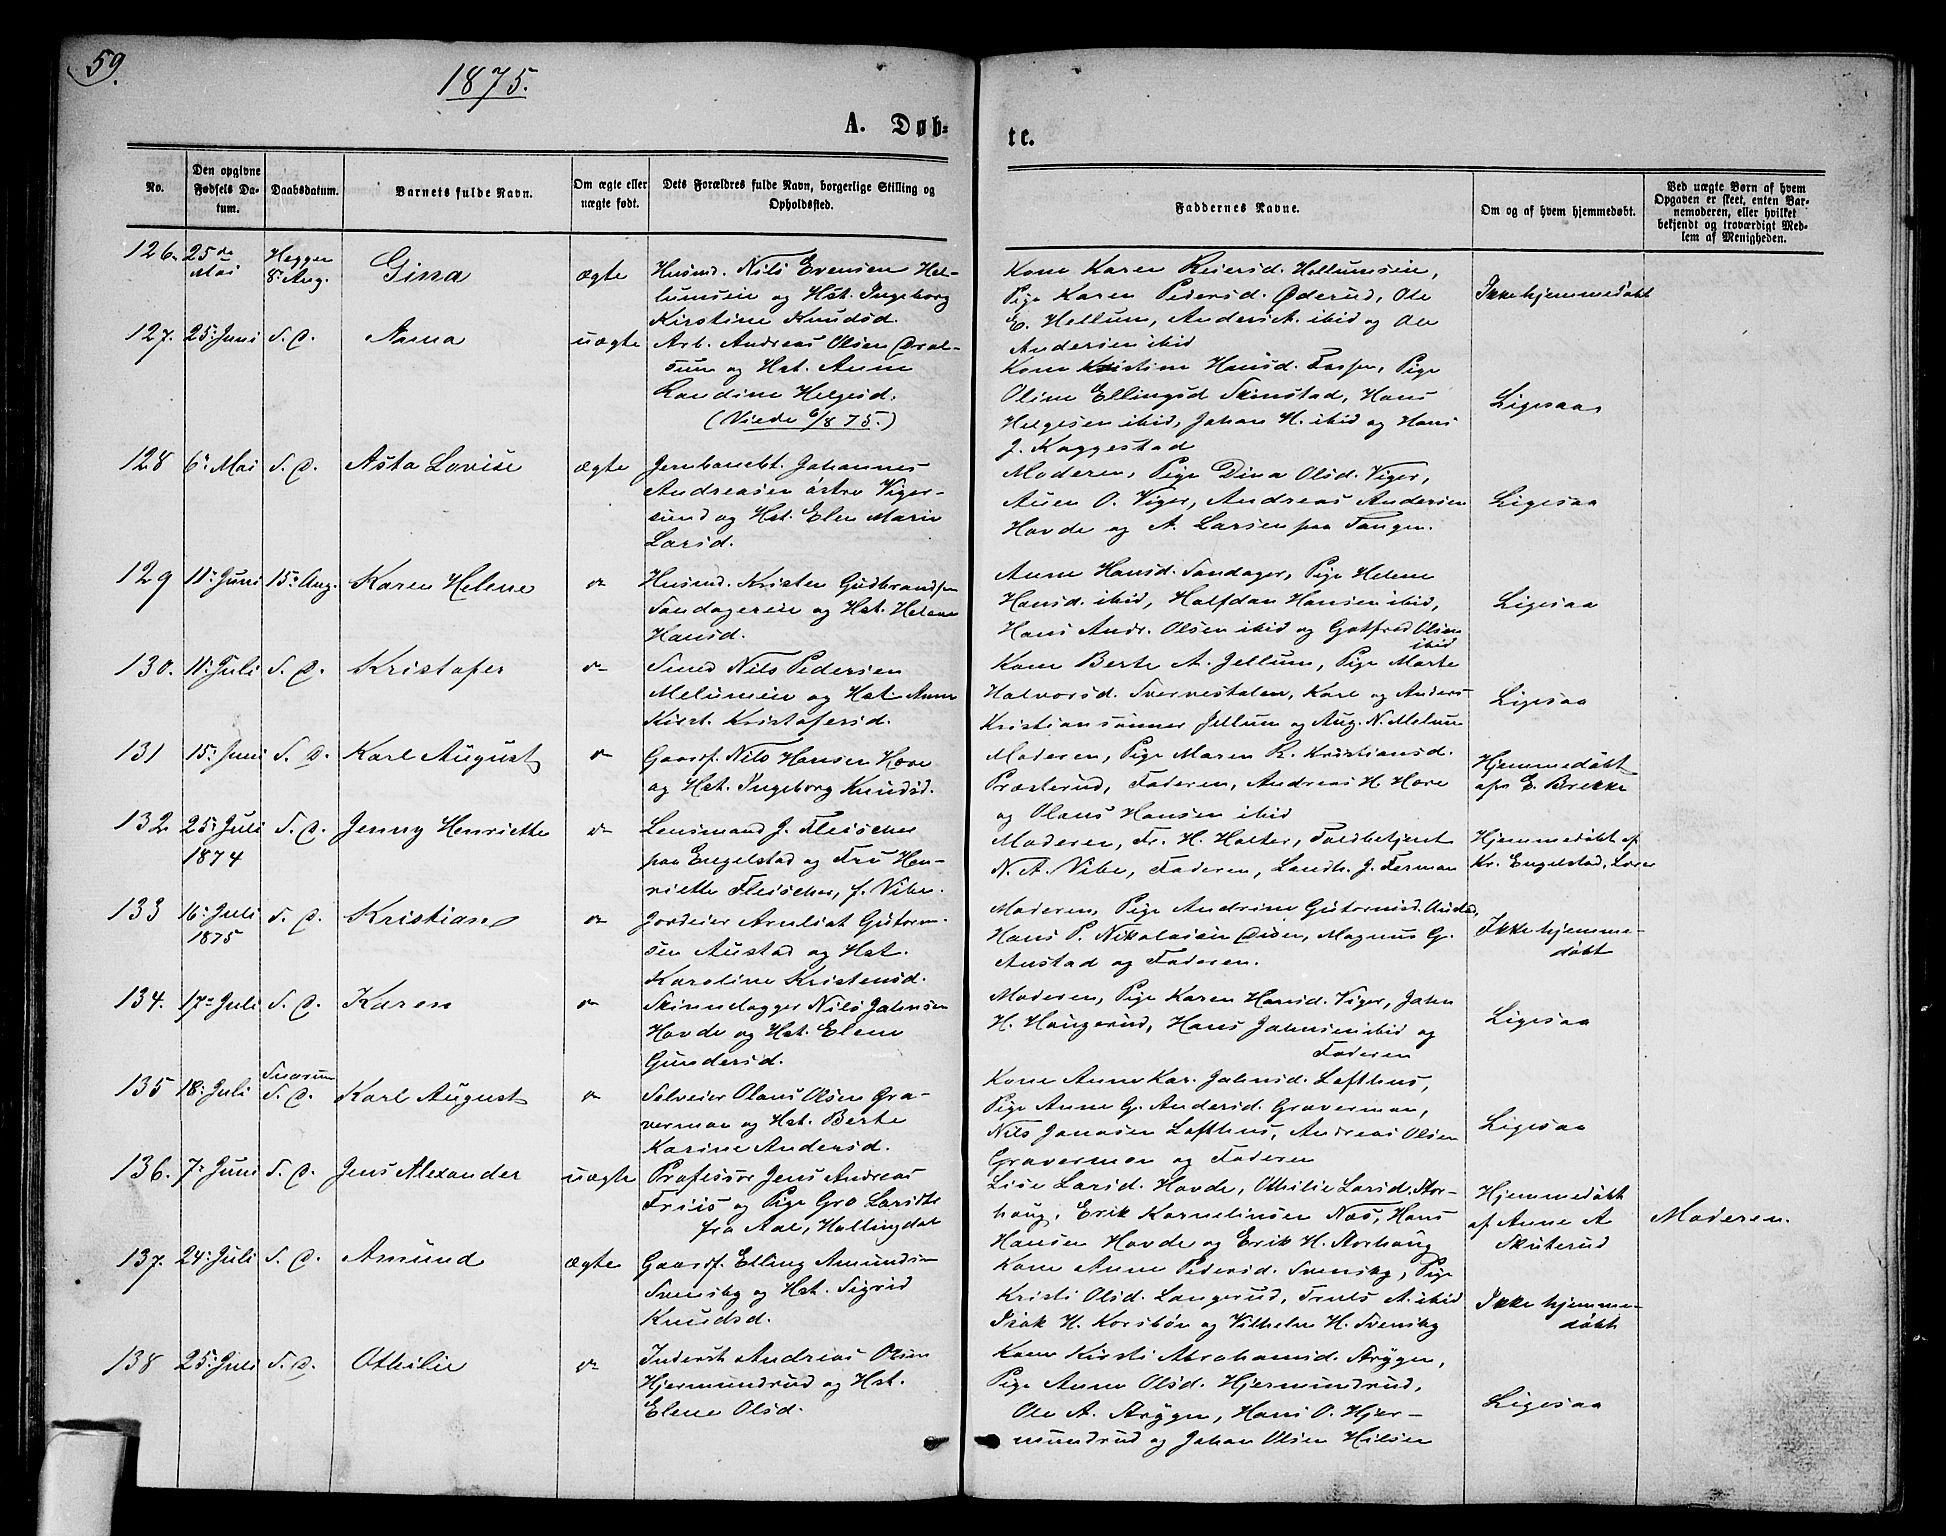 59.
1875.
A. Døb-
te.
No.
Den opgivne Fødsels Datum.
Daabsdatum.
Barnets fulde Navn.
Om ægte eller uægte født.
Dets Forældres fulde Navn, borgerlige Stilling og Opholdssted.
Faddernes Navne.
Om og af hvem hjemmedøbt.
Ved uægte Børn af hvem Opgaven er skeet, enten Barnemoderen, eller hvilket bekjendt og troværdigt Medlem af Menigheden.
126. 25de Mai Heggen 8. Aug. Gina ægte
Husmd. Nils Evensen Hel-
lumseie og Hst. Ingeborg
Kirstine Knudsd.
Kone Karen Reiersd. Hellumseie,
Pige Karen Pedersd. Øderud, Ole
E. Hellum, Anders A. ibid og Ole
Andersen ibid
Ikke hjemmedøbt
127. 25. Juni S. D. Anna uægte
Arb. Andreas Olsen
sum og Hst. Anne
Randine Helgesd.
(Viede 6/8 75.)
Kone Kristine Hansd. Pige
Oline Ellingsd Skinstad, Hans
Helgesen ibid, Johan H. ibid og Hans
J. Kaggestad
Ligesaa
128 6. Mai S. D. Asta Lovise ægte
Jernbanebt. Johannes
Andreasen østre Viger-
sund og Hst. Elen Marie
Larsd.
Moderen, Pige Dina Olsd. Viger,
Auen O. Viger, Andreas Andersen
Hovde og A. Larsen paa Tangen.
Ligesaa
129 11. Juni 15. Aug. Karen Helene
Husmd. Kristen Gudbrandsen
Sandagereie og Hst. Helene
Hansd.
Anne Hansd. Sandager, Pige Helene
Hansd. ibid, Halfdan Hansen ibid,
Hans Andr. Olsen ibid og Gotfred Olsen
ibid
Ligesaa
130. 11. Juli S. D. Kristofer
Smed Nils Pedersen
Melumeie og Hst. Anne
Kirst. Kristofersd.
Kone Berte A. Jellum, Pige Marte
Halvorsd. Svervestalen, Karl og Anders
Kristiansønner Jellum og Aug. N. Melum
Ligesaa
131 15. Juni S. D. Karl August
Gaardf. Nils Hansen Hove
og Hst. Ingeborg Knudsd.
Moderen, Pige Maren R. Kristiansd.
Præsterud, Faderen, Andreas H. Hove
og Olaus Hansen ibid
Hjemmedøbt
af E. Brekke
132 25. Juli 1874 S. D. Jenny Henriette
Lensmand J. Fleischer
paa Engelstad og Fru Hen-
riette Fleischer, f. Vibe.
Moderen, Fr. H. Holter, Toldbetjent
N. A. Vibe, Faderen, Landh. J. Forman
Hjemmedøbt af
Kr. Engelstad,
133 16. Juli 1875 S. D. Kristian
Jordeier Arnliot Gutorm-
sen Austad og Hst.
Karoline Kristensd.
Moderen, Pige Andrine Gutormsd. Austad,
Hans P. Nikolaisen Magnus G.
Austad og Faderen.
Ikke hjemme-
døbt
134. 17de Juli S. D. Karen
Skinnlægger Nils Johnsen
Hovde og Hst. Elene
Gundersd.
Moderen, Pige Karen Hansd. Viger, John
H. Haugerud, Hans Johnsen ibid og
Faderen
Ligesaa
135 18. Juli Snarum S. D. Karl August
Selveier Olaus Olsen Gra-
verman og Hst. Berte
Karine Andersd.
Kone Anne Kar. Johnsd. Lofthus,
Pige Anne G. Andersd. Graverman,
Nils Jonasen Lofthus, Andreas Olsen
Graverman og Faderen
Ligesaa
136. 7. Juni S. D. Jens Alexander uægte
Professor Jens Andreas
Friis og Pige Gro Larsdtr
fra Aal, Hallingdal
Lise Larsd. Hovde, Othilie Larsd. Stor-
haug, Erik Kornelinsen Nas, Hans
Hansen Hovde og Erik H. Storhaug
Hjemmedøbt
af Anne A
Skuterud
Moderen.
137. 24. Juli S. D. Amund ægte
Gaardf. Elling Amunds-
Svensby og Hst. Sigrid
Knudsd.
Kone Anne Pedersd. Svensby, Pige
Kristi Olsd. Langerud, Truls A. ibid
Isak H. Korsbøn og Vilhelm H. Svensby
Ikke hjemme-
døbt
138 25. Juli S. D. Othilie
Inderst Andreas Olsen
Hjermundrud og Hst.
Elene Olsd.
Kone Kirsti Abrahamsd. Strygen,
Pige Anne Olsd. Hjermundrud,
Ole A. Strygen, Hans O. Hjer-
mundrud og Johan Olsen Hilsen
Ligesaa